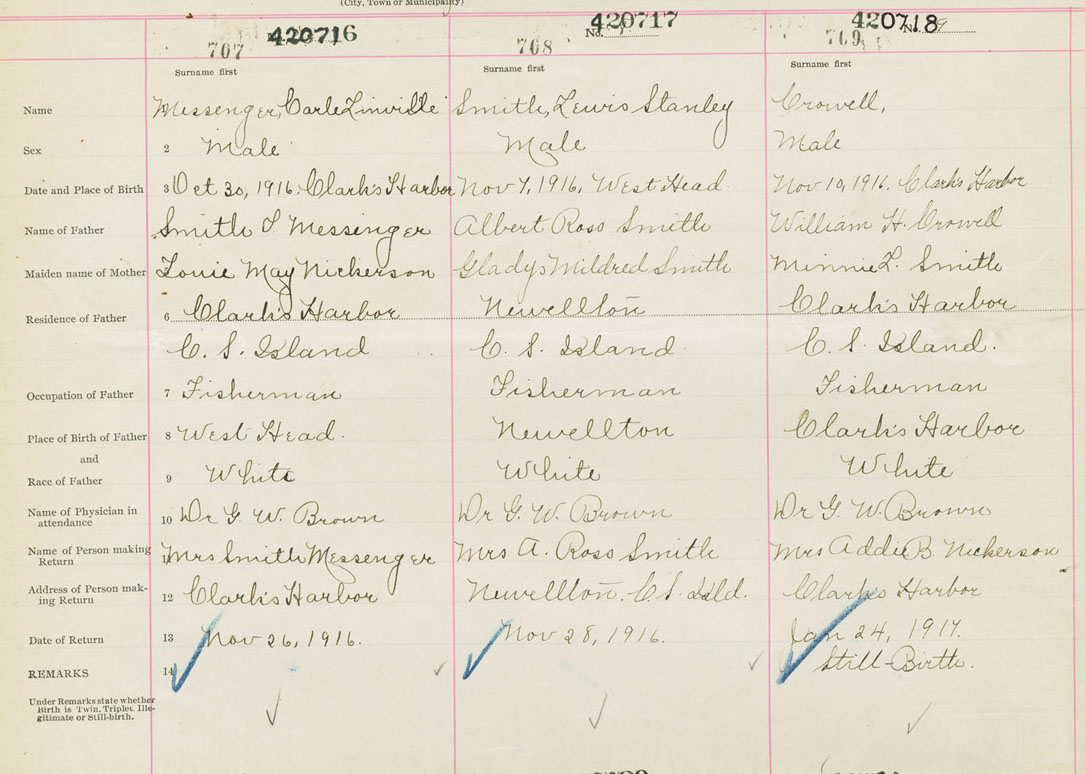 (City, Town or Municipality)
420716 420717 420718
707 No. 708 No. 709
Surname first Surname first Surname first
Name Messenger, Carle Linville Smith, Lewis Stanley Crowell,
Sex 2 Male Male Male
Date and Place of Birth 3 Oct 30, 1916. Clark's Harbor Nov 7, 1916, West Head. Nov 10, 1916. Clark's Harbor
Name of Father Smith S Messenger Albert Ross Smith William H. Crowell
Maiden name of Mother Louie May Nickerson Gladys Mildred Smith Minnie L. Smith
Residence of Father 6 Clark's Harbor Newellton Clark's Harbor
C. S. Island C. S. Island. C. S. Island.
Occupation of Father 7 Fisherman Fisherman Fisherman
Place of Birth of Father 8 West Head. Newellton Clark's Harbor
and
Race of Father 9 White White White
Name of Physician in attendance 10 Dr G. W. Brown Dr G. W. Brown Dr G. W. Brown
Name of Person making Return Mrs Smith Messenger Mrs A. Ross Smith Mrs Addie B Nickerson
Address of Person mak-
ing Return 12 Clark's Harbor Newellton. C. S. Isld. Clark's Harbor
Date of Return 13 Nov 26, 1916. Nov 28, 1916. Jan 24, 1917.
REMARKS 14 Still-Birth.
Under Remarks state whether
Birth is Twin, Triplet, Ille-
gitimate or Still-birth.